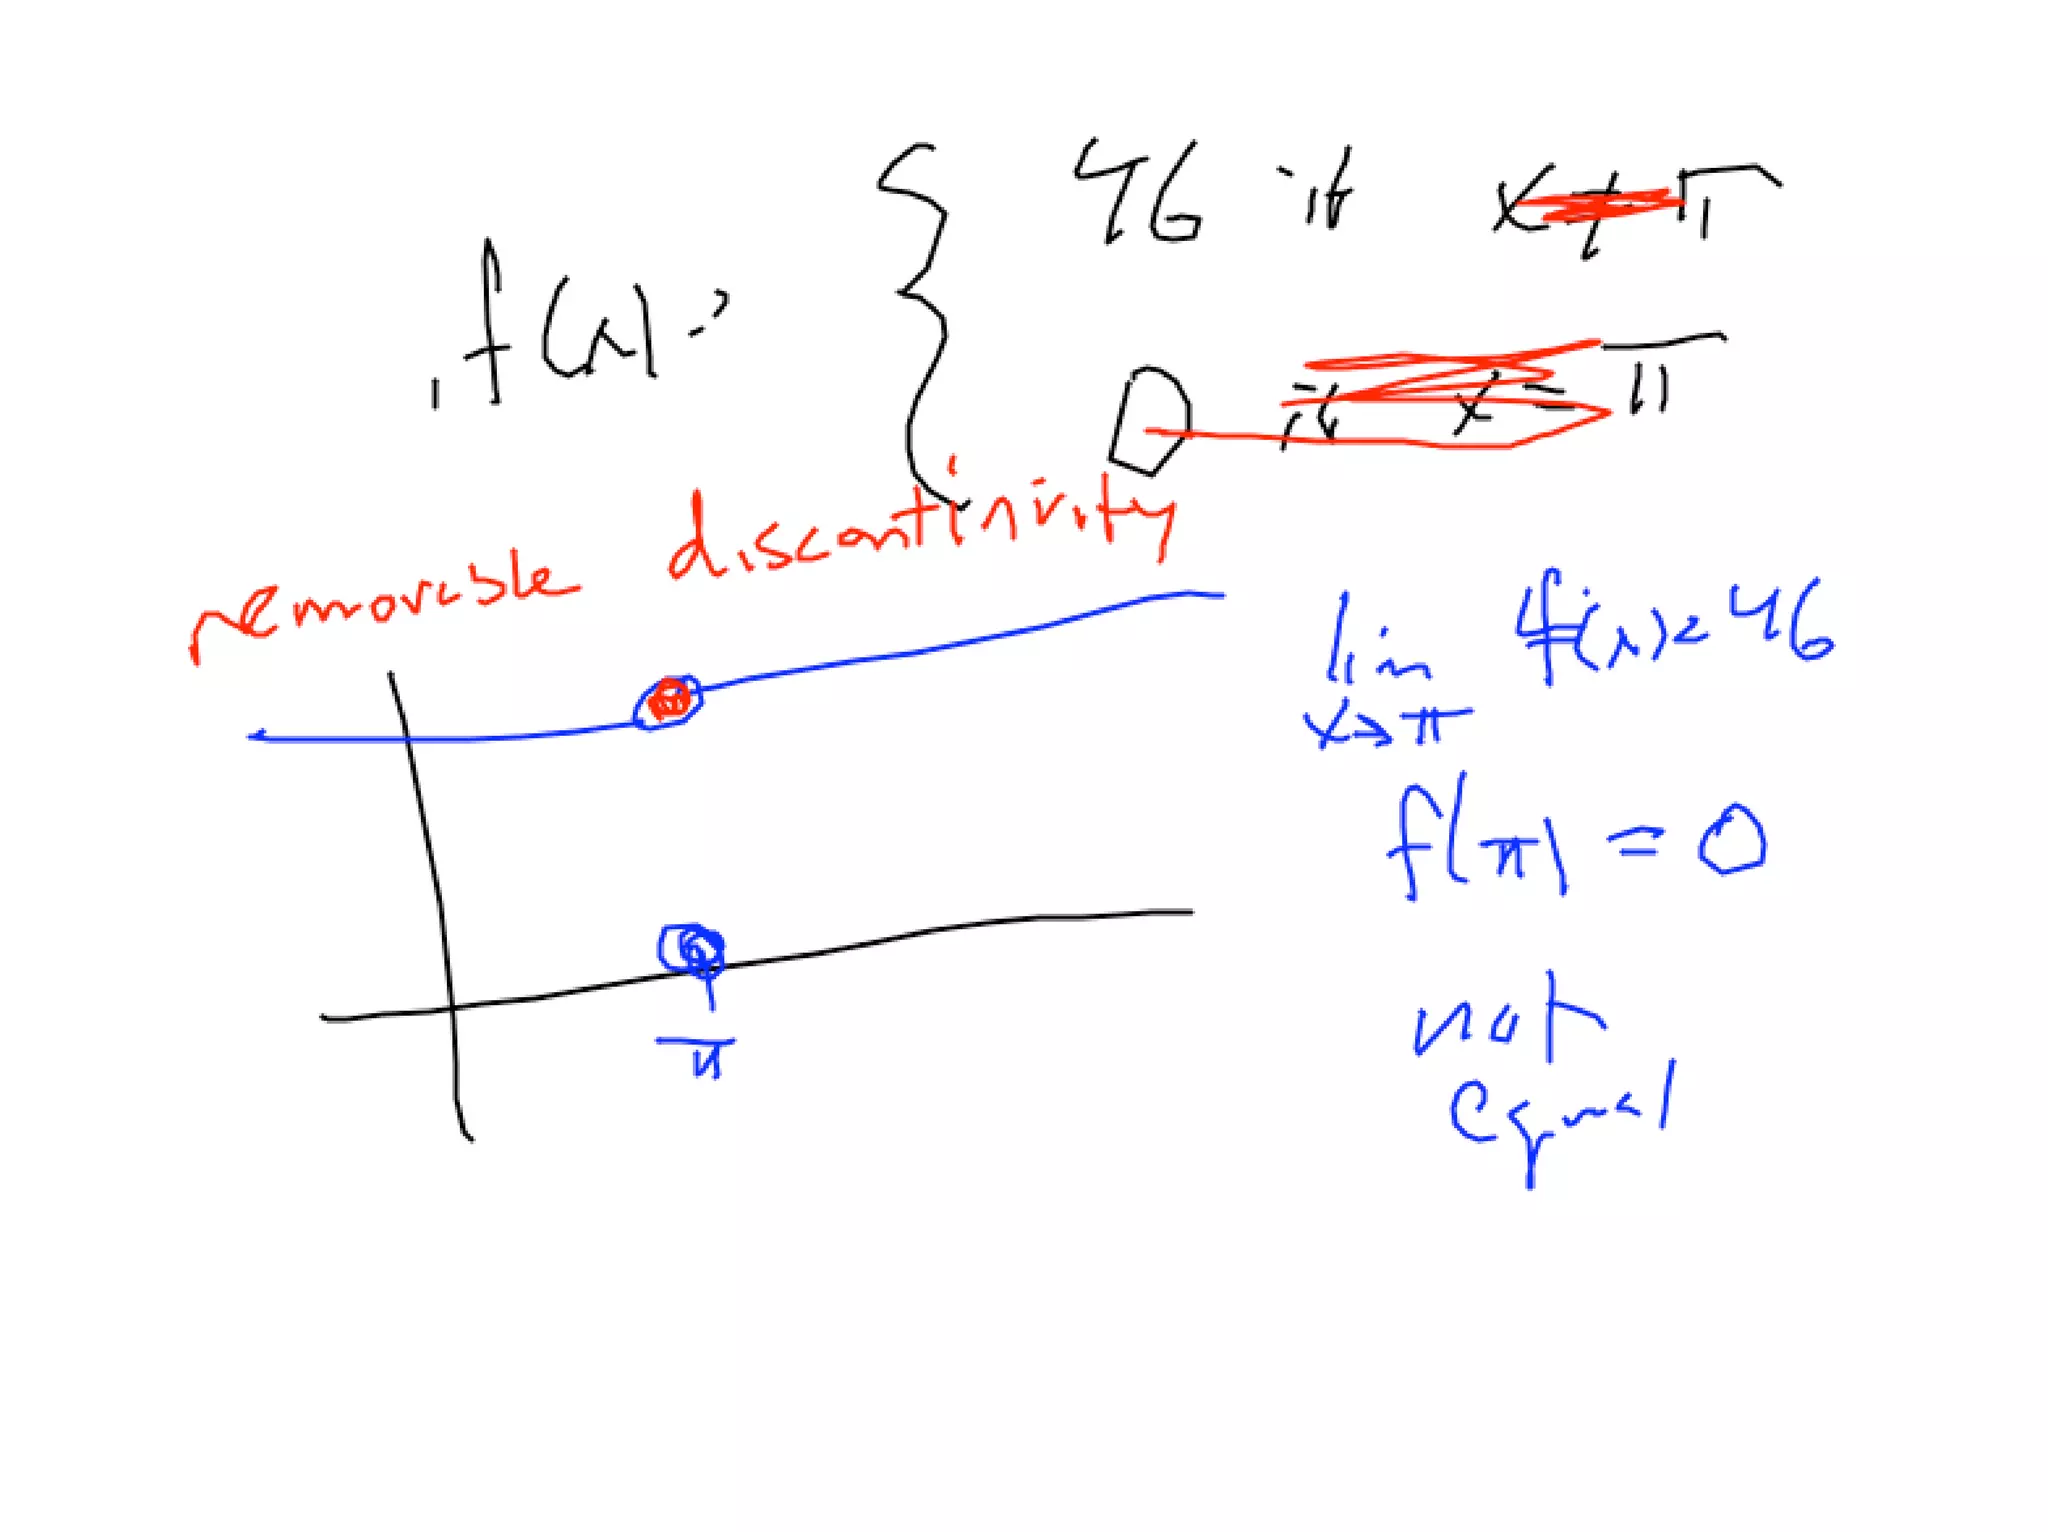 f(x) = { 46 if x ≠ π
0 if x = π
removable discontinuity
lim f(x) = 46
x→π
f(π) = 0
not
equal
π